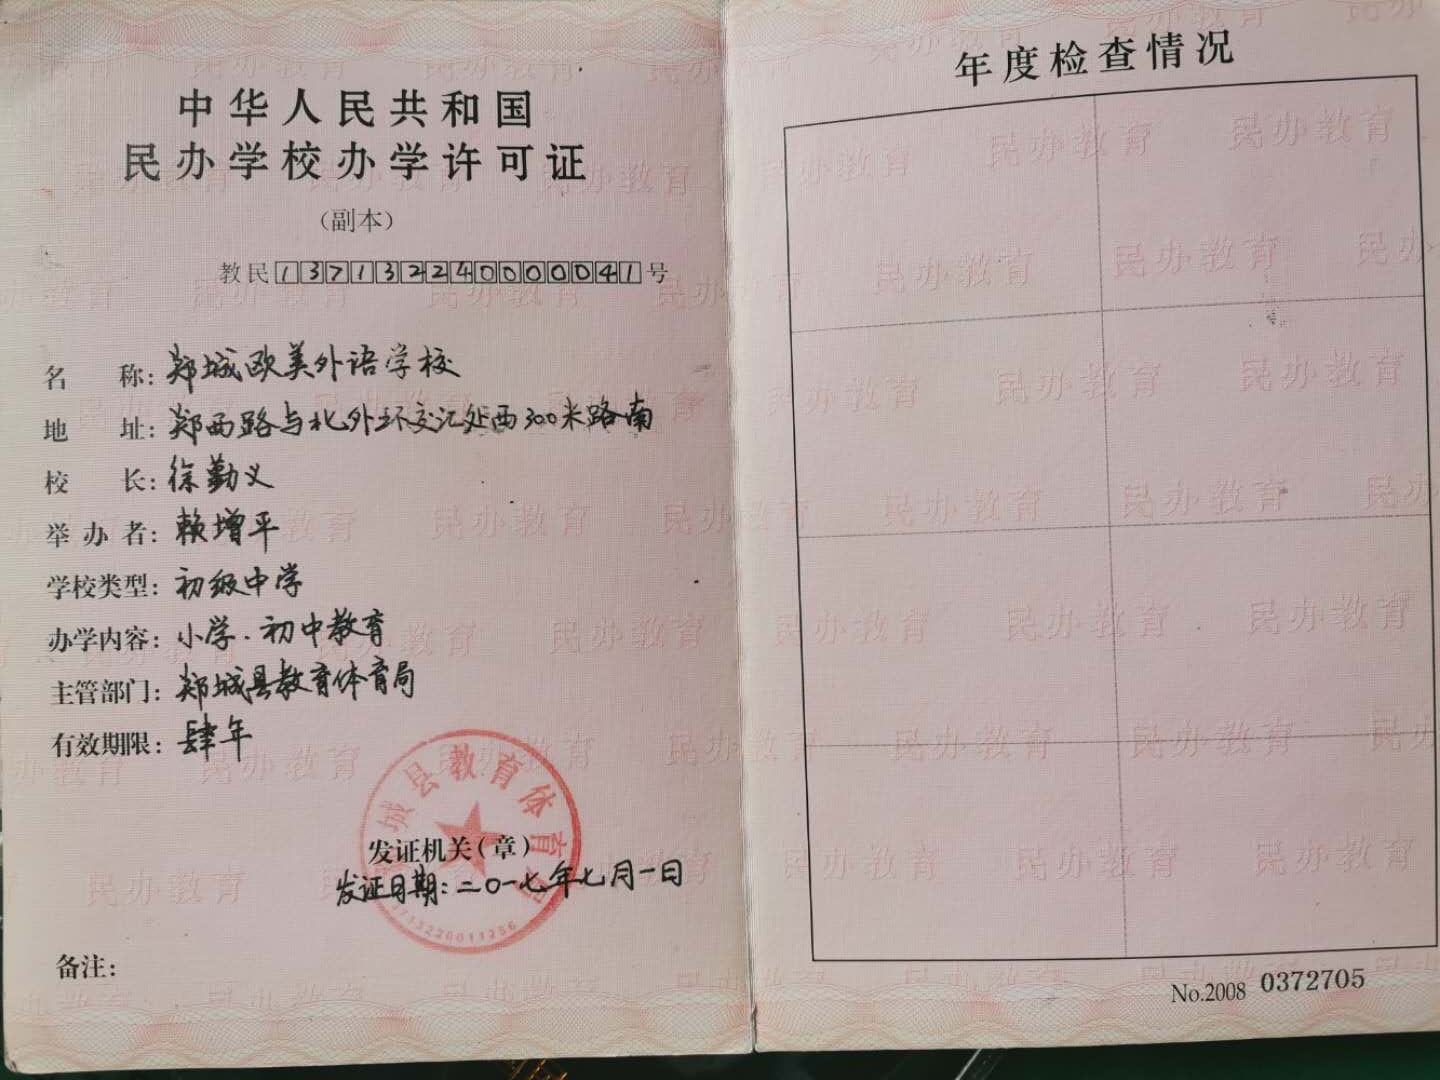 中华人民共和国
民办学校办学许可证
（副本）
教民137132240000041号
名 称：郯城欧美外语学校
地 址：郯西路与北外环交汇处西300米路南
校 长：徐勤义
举 办 者：赖增平
学校类型：初级中学
办学内容：小学、初中教育
主管部门：郯城县教育体育局
有效期限：肆年
城县教育体育局
发证机关（章）
发证日期：二〇一七年七月一日
备注：
年度检查情况
No.2008 0372705